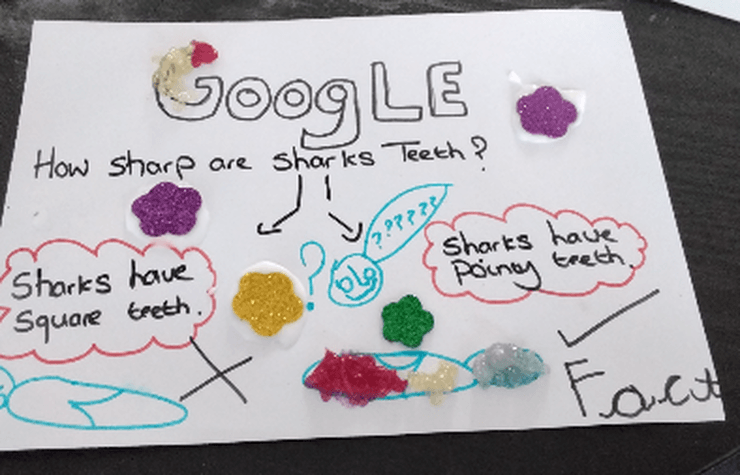 GoogLE
How sharp are sharks Teeth?
??????
?
Sharks have
Square teeth.
Sharks have
Poiney teeth.
Fact